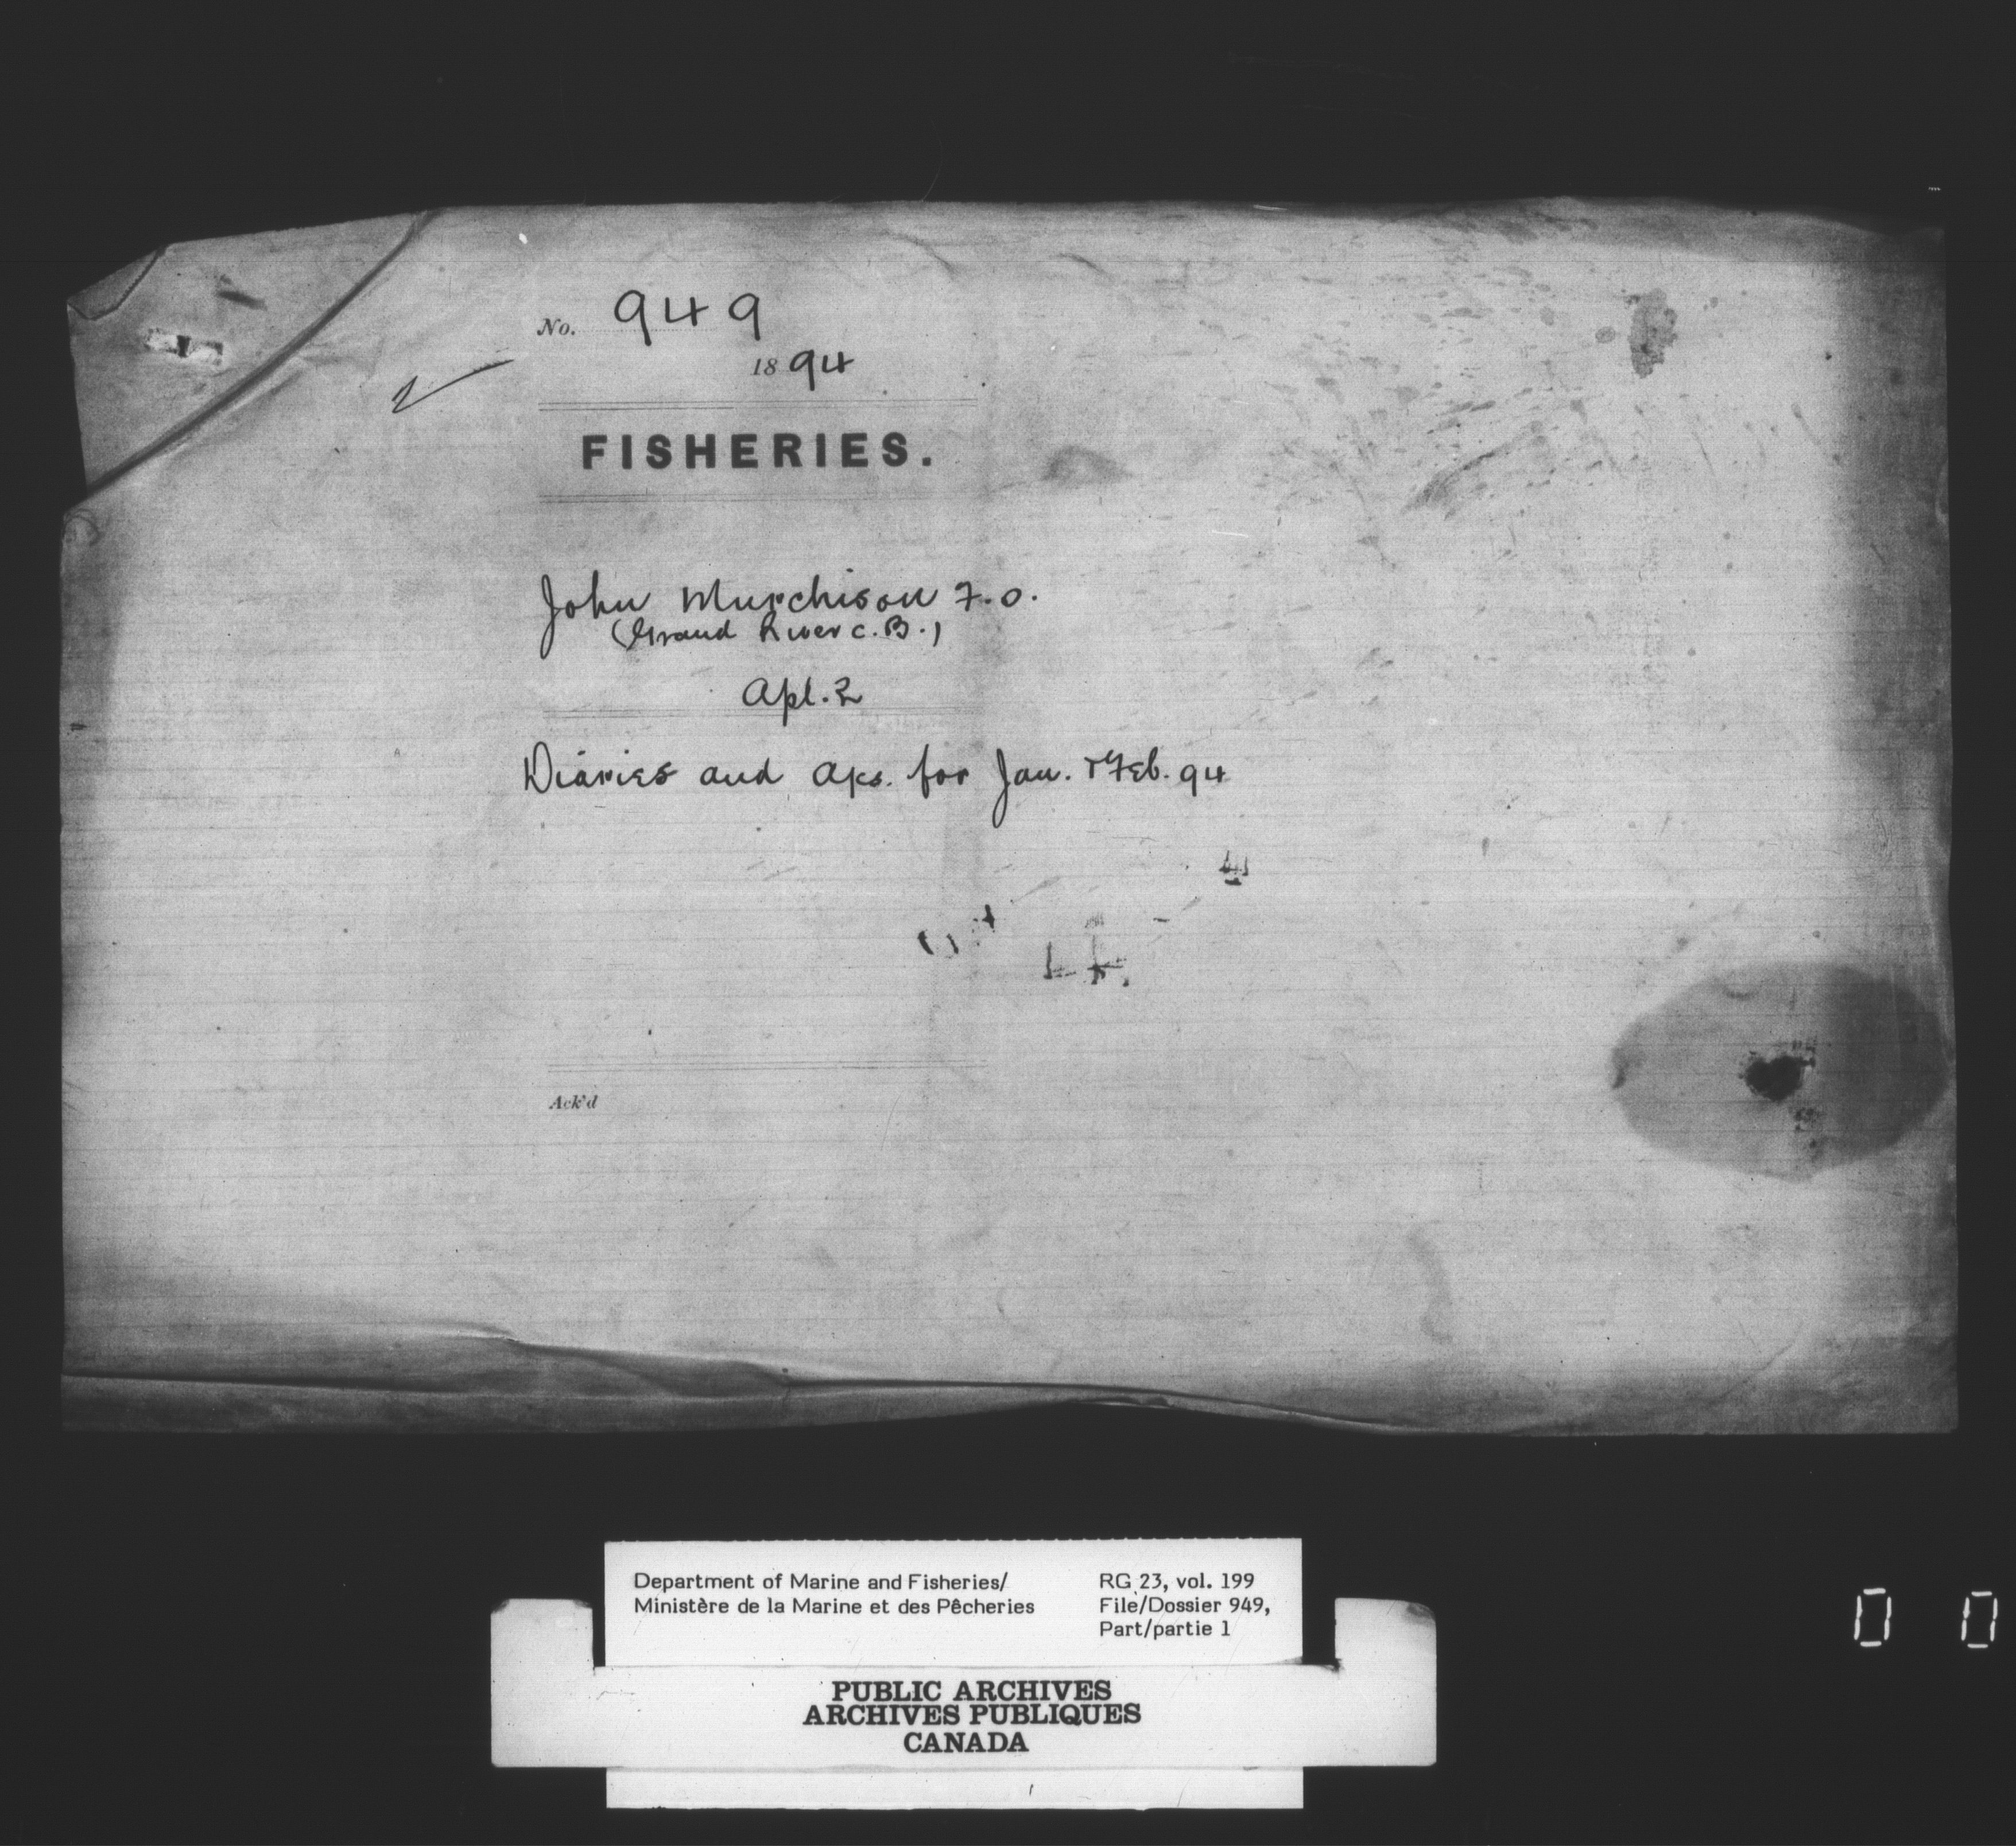 No. 949
1894
FISHERIES.
John Murchison F.O.
(Grand River C.B.)
Apl. 2
Diaries and aps. for Jan. & Feb. 94
Ack'd
Department of Marine and Fisheries/
Ministère de la Marine et des Pêcheries
RG 23, vol. 199
File/Dossier 949,
Part/partie 1
PUBLIC ARCHIVES
ARCHIVES PUBLIQUES
CANADA
0 0